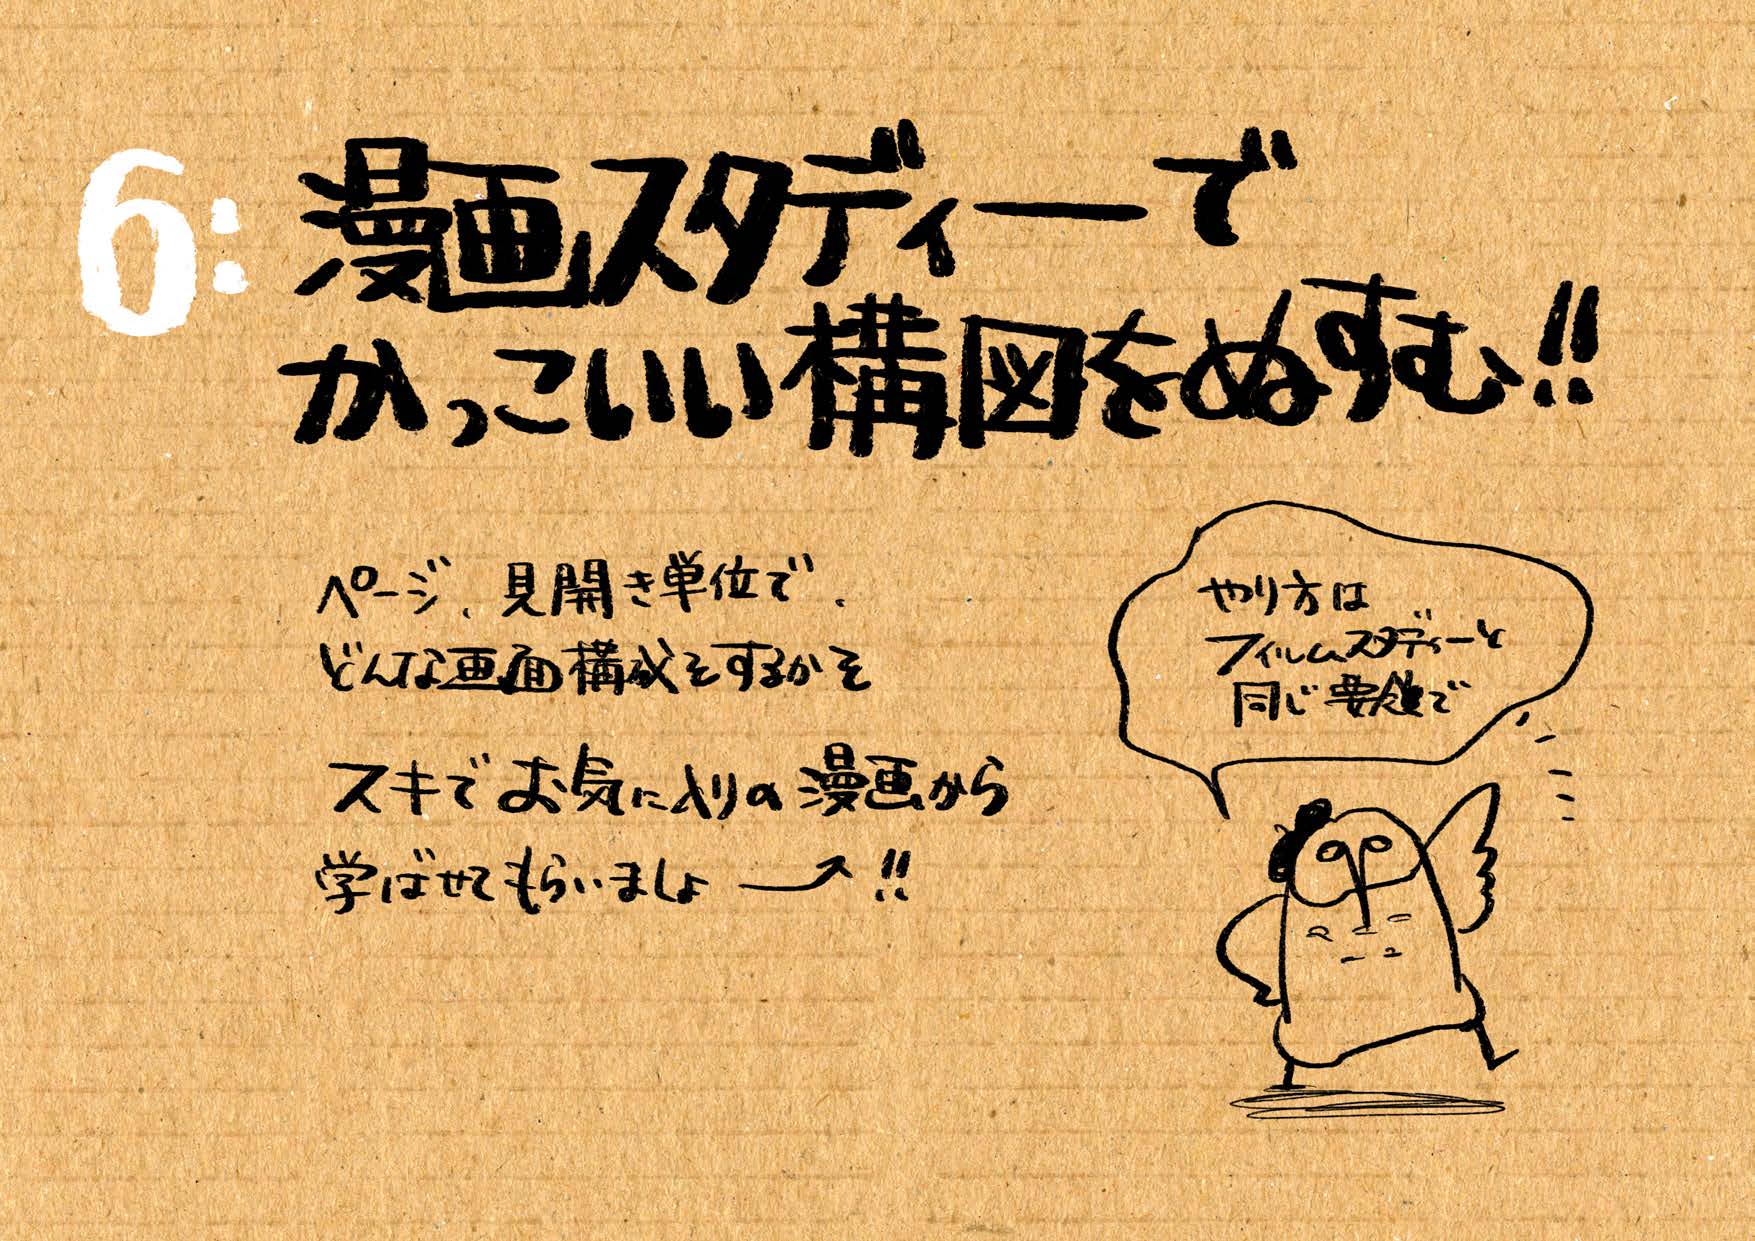 6: 漫画スタディーで
かっこいい構図をぬすむ!!
ページ、見開き単位で、
どんな画面構成をするかを
スキでお気に入りの漫画から
学ばせてもらいましょ→!!
やり方は
フィルムスタディーと
同じ要領で